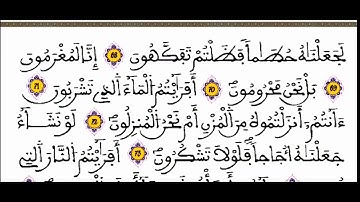 لَجَعَلْنَٰهُ حُطَٰماً فَظَلْتُمْ تَفَكَّهُونَ 68 إِنَّا لَمُغْرَمُونَ
69 بَلْ نَحْنُ مَحْرُومُونَ 70 أَفَرَٰيْتُمُ الْمَآءَ الَّذِے تَشْرَبُونَ 71
ءَآنتُمُ أَنزَلْتُمُوهُ مِنَ الْمُزْنِ أَمْ نَحْنُ الْمُنزِلُونَ 72 لَوْ نَشَآءُ
جَعَلْنَٰهُ أُجَاجاً فَلَوْلَا تَشْكُرُونَ 73 أَفَرَٰيْتُمُ النَّارَ الَّتِے